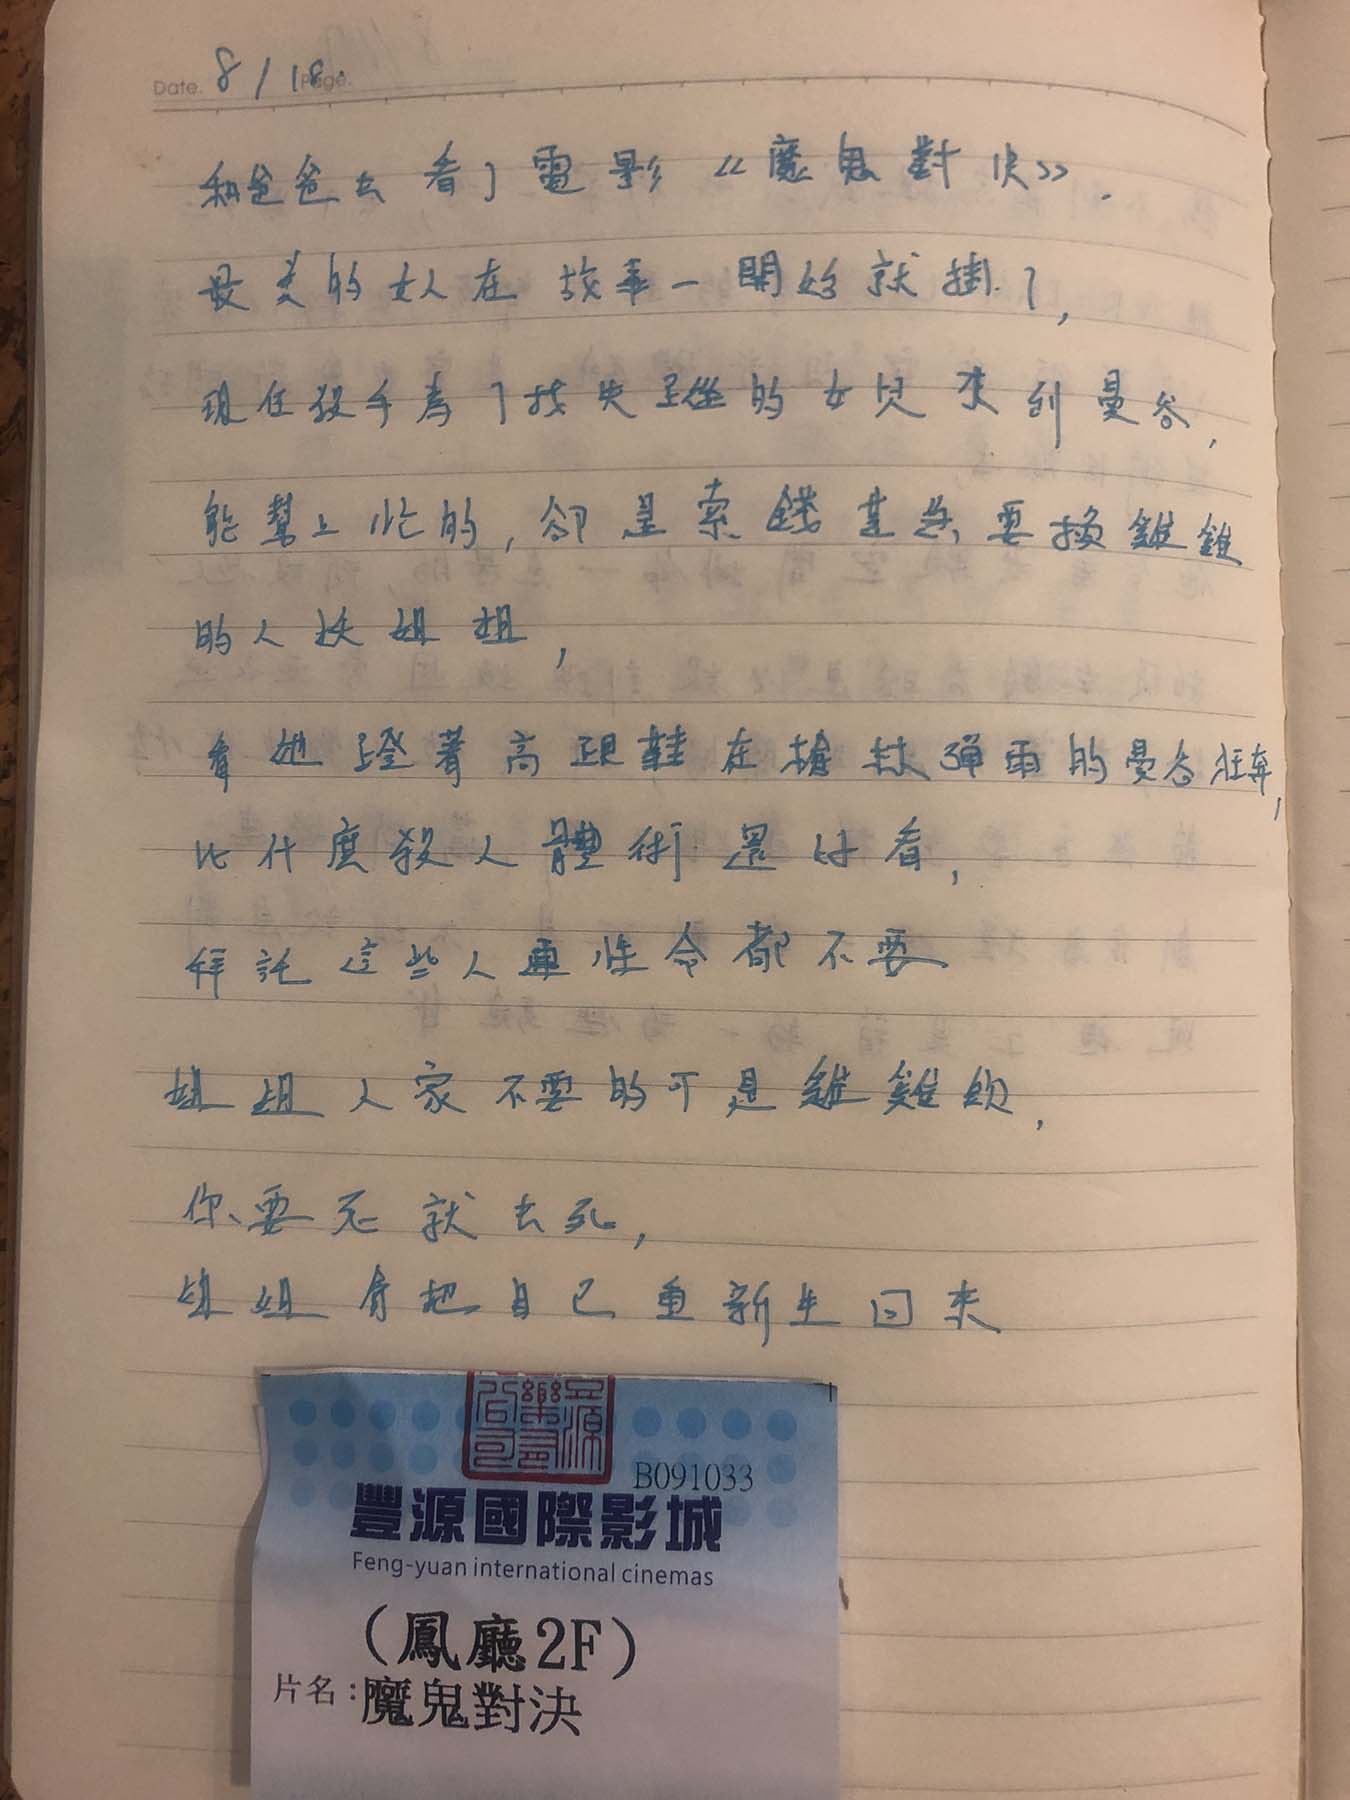 Date. 8/18. Page.
和爸爸去看了電影《魔鬼對決》.
最美的女人在故事一開始就掛了,
現任殺手為了找失蹤的女兒來到曼谷,
能幫上忙的,卻是索錢是為要換雞雞
的人妖姐姐,
看她蹬著高跟鞋在槍林彈雨的曼谷狂奔,
比什麼殺人體術還好看,
拜託這些人連性命都不要
姐姐人家不要的可是雞雞欸,
你要死就去死,
姐姐會把自己重新生回來
B091033
豐源國際影城
Feng-yuan international cinemas
(鳳廳2F)
片名:魔鬼對決